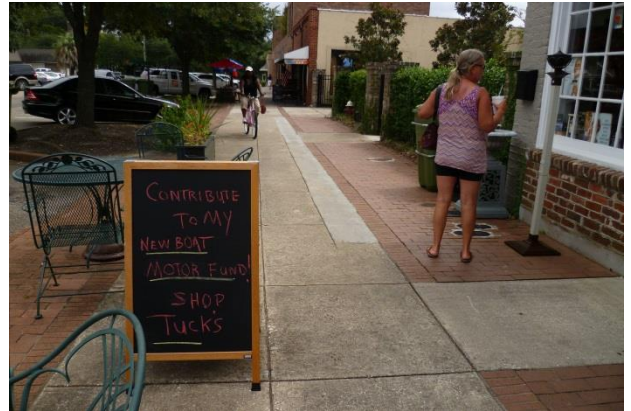 CONTRIBUTE
TO MY
NEW BOAT
MOTOR FUND!
SHOP
TUCK'S